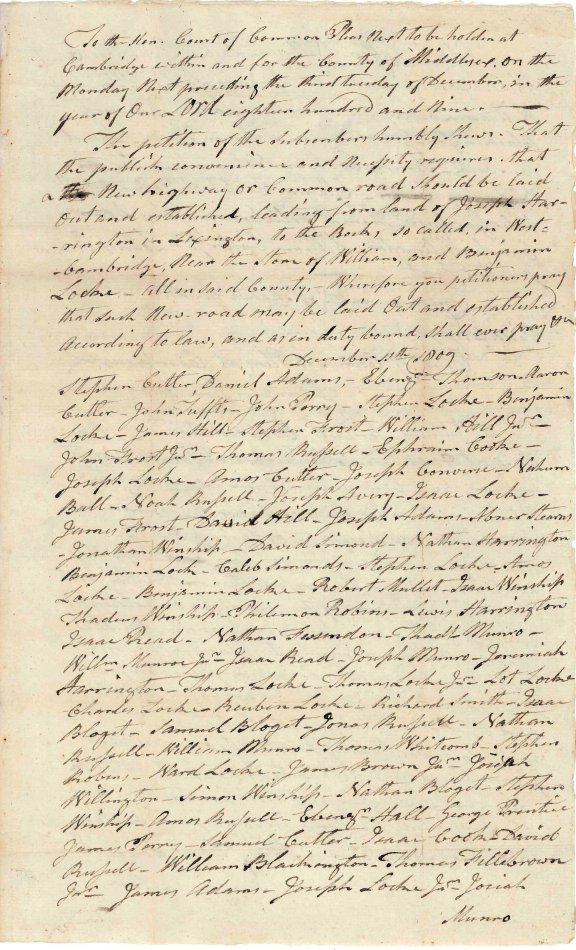 To the Hon. Court of Common Pleas Next to be holden at
Cambridge within and for the County of Middlesex, on the
Monday Next preceding the third tuesday of December, in the
year of Our LORD eighteen hundred and Nine.
The petition of the Subscribers humbly Shews. That
the publick convenience and Necessity requires that
a New highway Or Common road Should be laid
Out and established, leading from land of Joseph Har-
-rington in Lexington, to the Rocks so called, in West-
-Cambridge, Near the Store of William, and Benjamin
Locke, – all in said County – Wherefore you petitioners pray
that such New road may be laid Out and established
According to law, and as in duty bound, shall ever pray
December 11th 1809.
Stephen Cutler Daniel Adams, – Ebenr. Thomson Aaron
Cutler – John Tuffts – John Perry – Stephen Locke – Benjamin
Locke – James Hill – Stephen Frost – William Hill Jnr.
John Frost Jnr. – Thomas Russell – Ephraim Cooke –
Joseph Locke – Amos Cutler – Joseph Converse – Nahum
Ball – Noah Russell – Joseph Avery – Isaac Locke –
James Frost – David Hill – Joseph Adams – Abner Stearns
– Jonathan Winship – David Simond – Nathan Harrington
Benjamin Lock – Caleb Simonds – Stephen Locke – Amos
Locke – Benjamin Locke – Robert Mullet – Isaac Winship
Thadeus Winship – Philemon Robins – Lewis Harrington
Isaac Read – Nathan Fessendon – Thads. Munro –
Willm Munroe Jnr. Isaac Read – Joseph Munro – Jeremiah
Harrington – Thomas Locke – Thomas Locke Jnr. – Lot Locke
Charles Locke – Reuben Locke – Richard Smith – Isaac
Bloget – Samuel Bloget Jonas Russell – Nathan
Russell – William Munro – Thomas Whitcomb – Stephen
Robins – Ward Locke – James Brown Jnr. Joseph
Willington – Simon Winship – Nathan Bloget – Stephen
Winship – Amos Russell – Ebenr. Hall – George Prentice
James Perry – Samuel Cutler – Isaac Cooke David
Russell – William Blackington – Thomas Fillebrown
Jnr. James Adams – Joseph Locke Jnr. Josiah
Munro